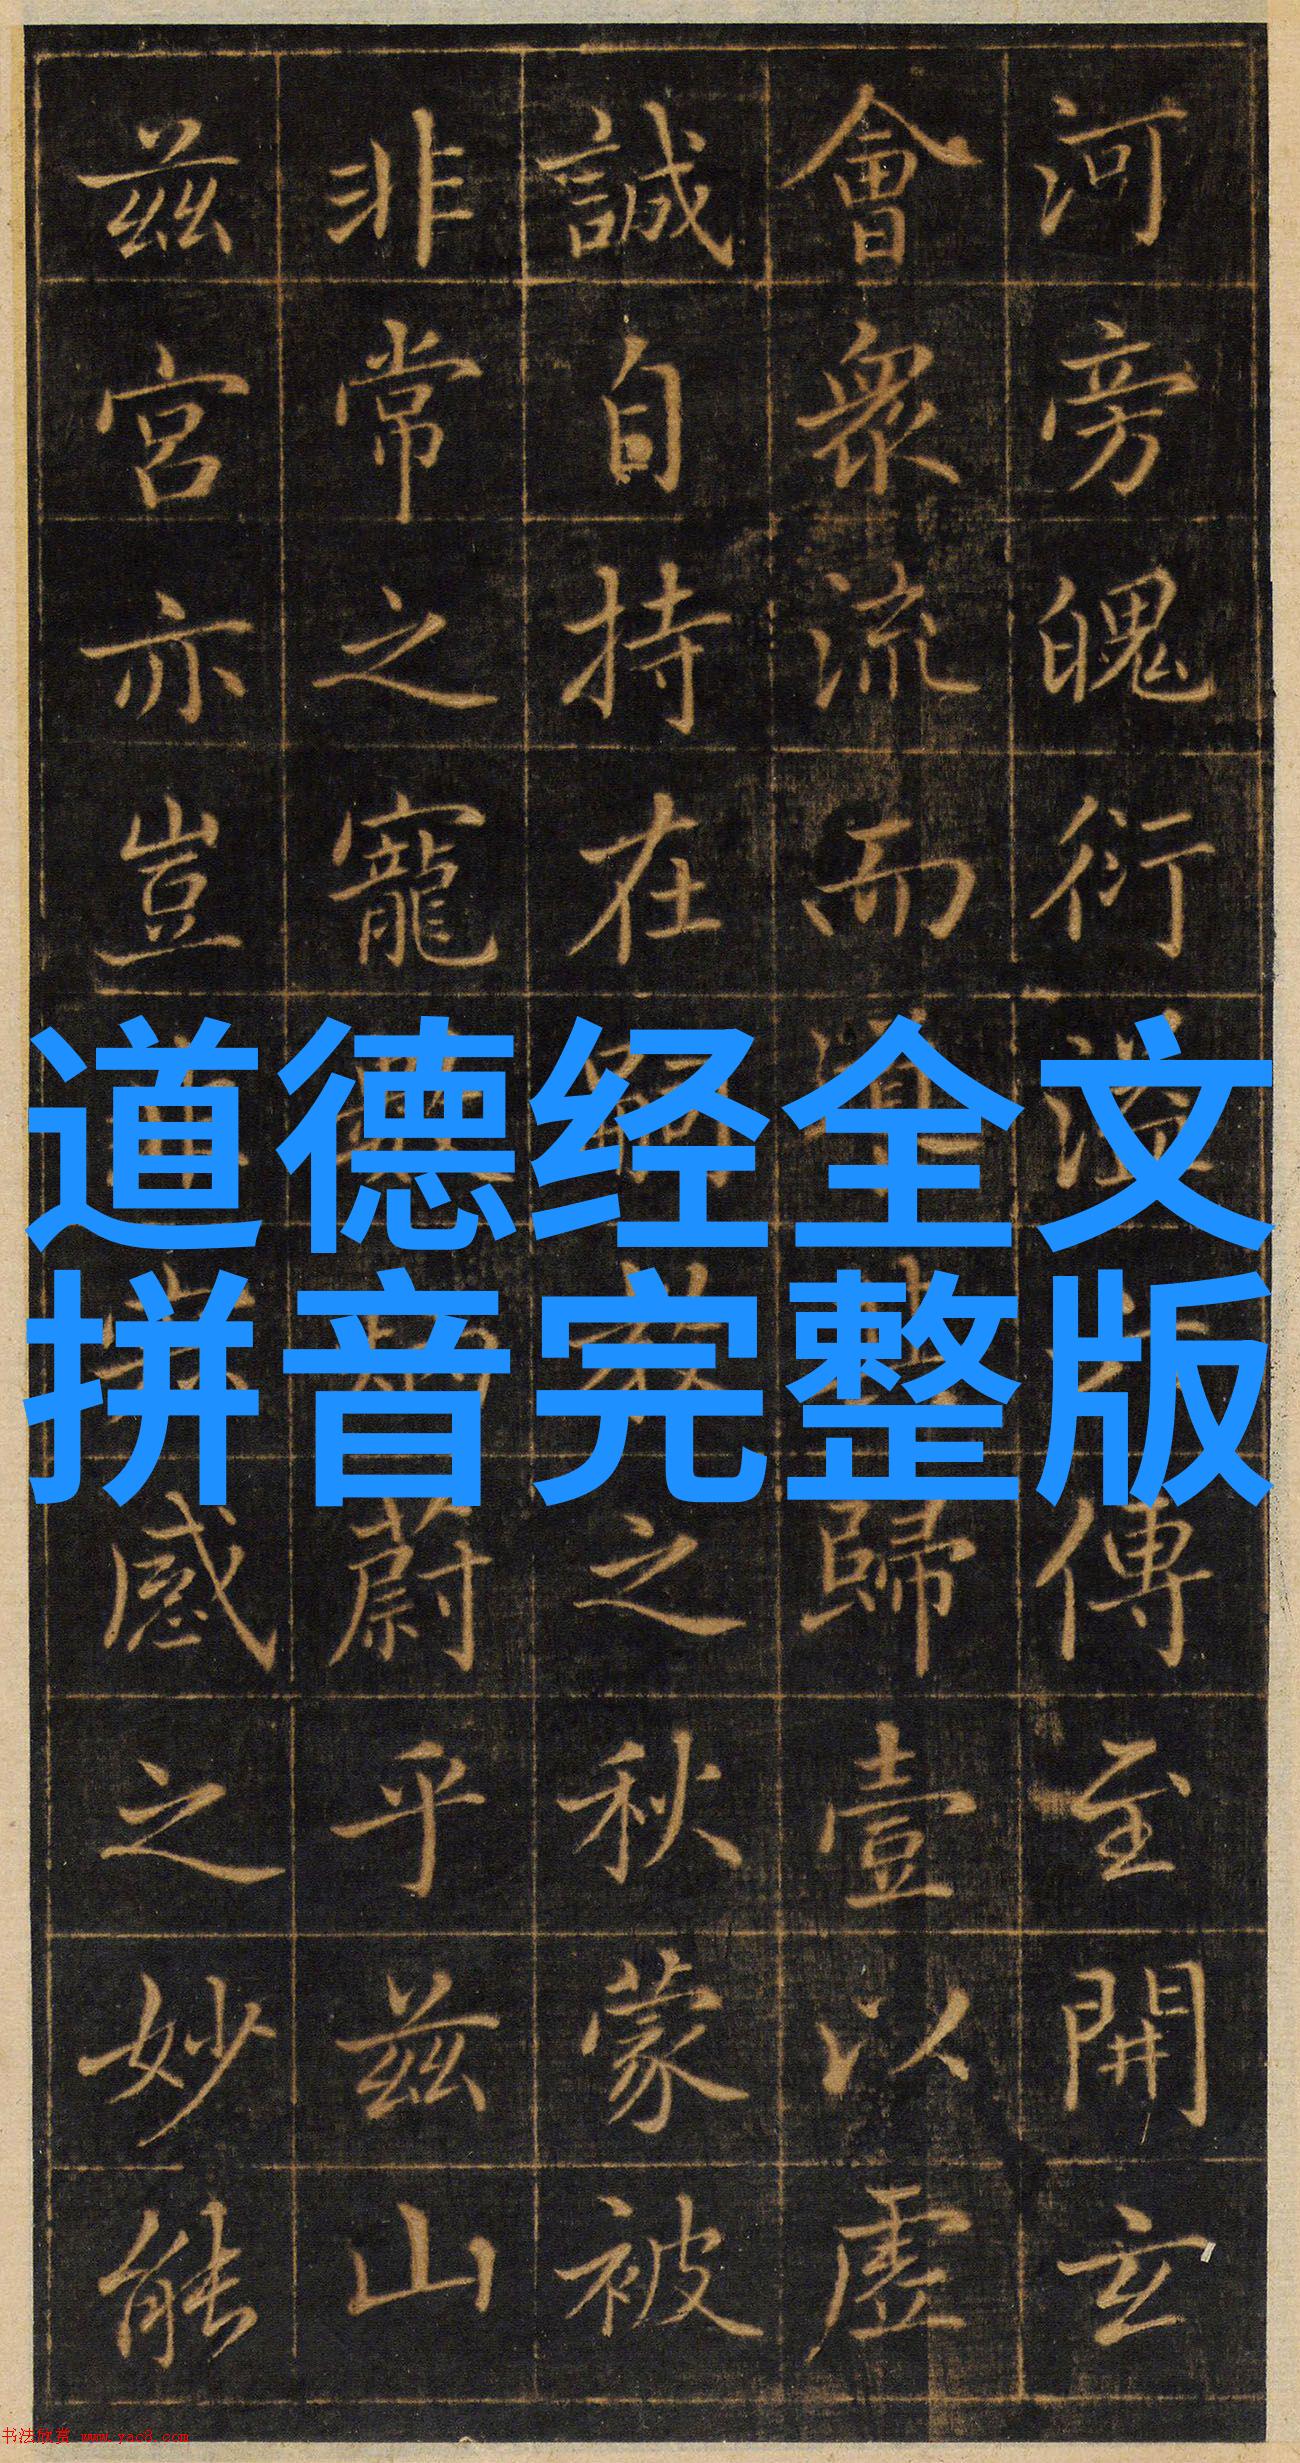 河旁魄衍溢
傳至開玄
會衆流而
歸壹以虛
誠自持在
之秋蒙被
非常之寵
蔚乎兹山
兹宮亦豈
感之妙能
道德经全文
拼音完整版
书法欣赏 www.yac8.com